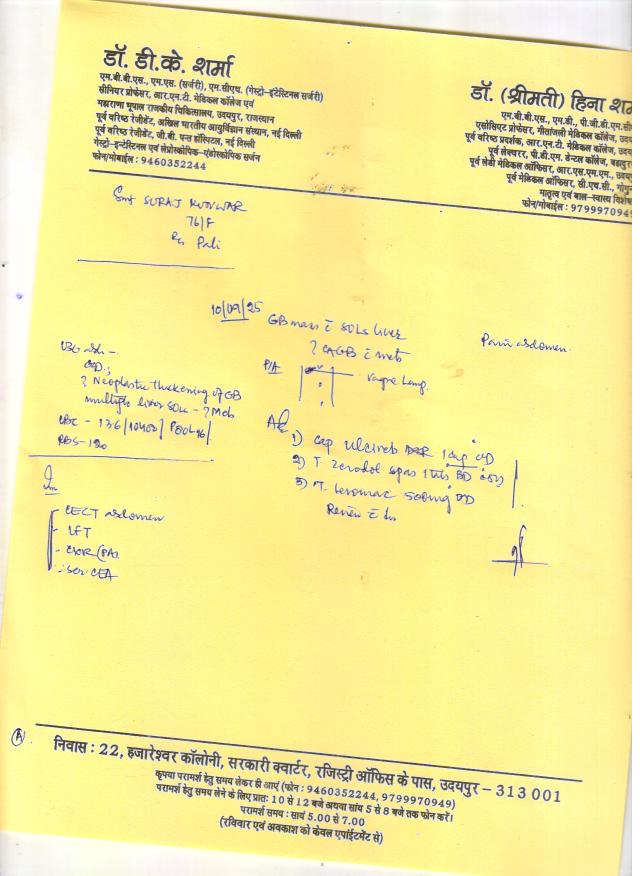 डॉ. डी.के. शर्मा
एम.बी.बी.एस., एम.एस. (सर्जरी), एम.सीएच. (गेस्ट्रो-इंटेस्टिनल सर्जरी)
सीनियर प्रोफेसर, आर.एन.टी. मेडिकल कॉलेज एवं
महाराणा भूपाल राजकीय चिकित्सालय, उदयपुर, राजस्थान
पूर्व वरिष्ठ रेजीडेंट, अखिल भारतीय आयुर्विज्ञान संस्थान, नई दिल्ली
पूर्व वरिष्ठ रेजीडेंट, जी.बी. पन्त हॉस्पिटल, नई दिल्ली
गेस्ट्रो-इन्टेस्टिनल एवं लेप्रोस्कोपिक-एंडोस्कोपिक सर्जन
फोन/मोबाईल : 9460352244
डॉ. (श्रीमती) हिना
एम.बी.बी.एस., एम.डी., पी.जी.डी.
एसोसिएट प्रोफेसर, गीतांजली मेडिकल कॉलेज,
पूर्व वरिष्ठ प्रदर्शक, आर.एन.टी. मेडिकल कॉलेज,
पूर्व लेक्चरर, पी.डी.एम. डेन्टल कॉलेज,
पूर्व लेडी मेडिकल ऑफिसर, आर.एस.एम.एम.,
पूर्व मेडिकल ऑफिसर, सी.एच.सी.,
मातृत्व एवं बाल-स्वास्थ्य
फोन/मोबाईल : 979997094
Smt SURAJ KUNWAR
76/F
R/o Pali
10/09/25
GB mass c̄ SOLs liver
? CAGB c̄ mets
Pain abdomen
USG abd -
? Neoplastic thickening of GB
multiple liver SOLs - ? Mets
CBC - 13.6/10400/
RBS - 120
P/A
Vague lump
1) Cap Ulcireb DSR 1 cap OD
2) T. Zerodol spas 1 tab BD
3) T. Levomac 500mg OD
Review c̄
CECT abdomen
- LFT
- CXR (PA)
- Ser CEA
निवास : 22, हजारेश्वर कॉलोनी, सरकारी क्वार्टर, रजिस्ट्री ऑफिस के पास, उदयपुर - 313 001
कृपया परामर्श हेतु समय लेकर ही आएं (फोन : 9460352244, 9799970949)
परामर्श हेतु समय लेने के लिए प्रातः 10 से 12 बजे अथवा सांय 5 से 8 बजे तक फोन करें।
परामर्श समय : सायं 5.00 से 7.00
(रविवार एवं अवकाश को केवल एपॉइंटमेंट से)